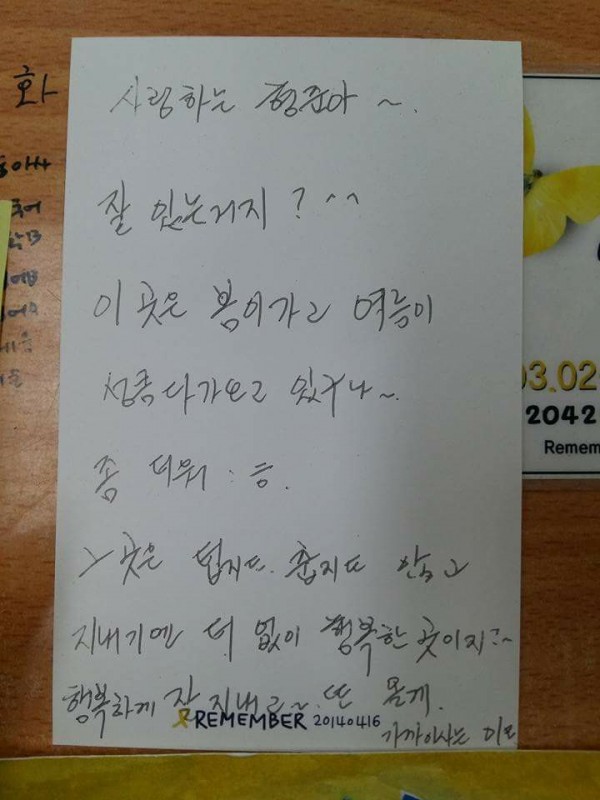 사랑하는 형준아 ~.
잘 있는거지? ^^
이 곳은 봄이가고 여름이
성큼다가오고 있구나~.
좀 더워 : ㅎ.
그 곳은 덥지도. 춥지도 않고
지내기엔 더 없이 행복한 곳이지?~
행복하게 잘 지내고~. 또 올게.
REMEMBER 20140416
가까이사는 이모
화
03.02
2042
Remem